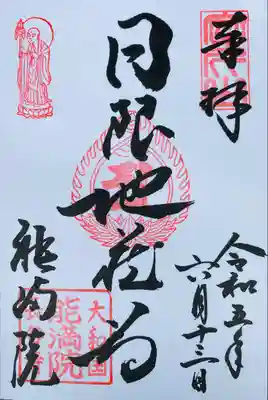 奉拝
令和五年
六月十三日
日限地蔵尊
能満院
大和国
能満院